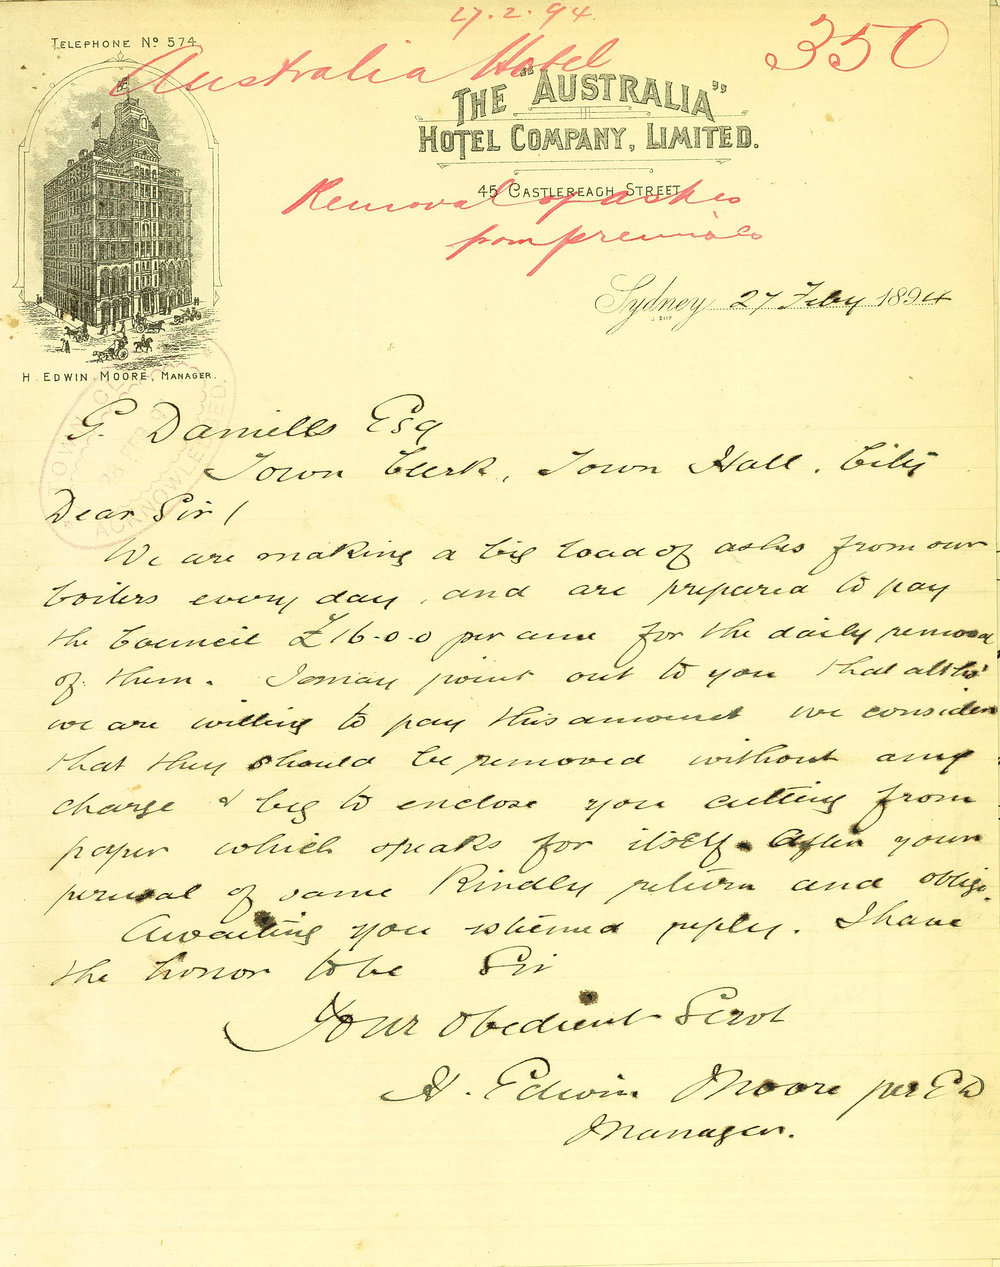 27.2.94.
Australia Hotel
350
TELEPHONE No 574
THE "AUSTRALIA"
HOTEL COMPANY, LIMITED.
45 CASTLEREAGH STREET
Removal of ashes
from premises
Sydney 27 Feby 1894
H. EDWIN MOORE, MANAGER.
TOWN CL
28 FEB 9
ACKNOWLEDGED.
G. Daniells Esq
Town Clerk, Town Hall. City
Dear Sir /
We are making a big load of ashes from our
boilers every day, and are prepared to pay
the Council £16-0-0 per ann for the daily removal
of them. I may point out to you that altho'
we are willing to pay this amount we consider
that they should be removed without any
charge & beg to enclose you cutting from
paper which speaks for itself. After your
perusal of same Kindly return and oblige.
Awaiting you esteemed reply. I have
the honor to be Sir
Your Obedient Servt
H. Edwin Moore per
Manager.